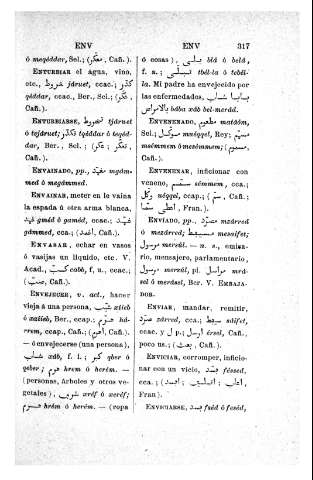 ENV
ENV
317
ó meqáddar, Sel.; (معكّر, Cañ.).
ENTURBIAR el agua, vino,
etc., خروط járuet, ccac.; كدّر
qáddar, ccac., Ber., Sel.; (عكّر,
Cañ.).
ENTURBIARSE
ó tqáddar ó teqád-
dar, Ber., Sel.; (عكر, Cañ.).
ENVAINADO, pp., مغمّد mgám-
med ó megámmed.
ENVAINAR, meter en la vaina
la espada ó otra arma blanca,
gmád ó gamád, ccac.; غمّد
gámmed, cca.; (اغمد, Cañ.).
ENVASAR, echar en vasos
ó vasijas un líquido, etc. V.
Acad., كبّ cabb, f, u, ccac.;
(صبّ, Cañ.).
ENVEJECER, v. act., hacer
vieja á una persona, شيّب xáiieb
ó xáiieb, Ber., ccap.; هرّم há-
rrem, ccap., Cañ.; (اهرم, Cañ.).
— ó envejecerse (una persona),
شاب xáb, f. i.; كبر qber ó
qeber; هرم hrem ó herém. —
(personas, árboles y otros ve-
getales), شرف xréf ó xeréf;
هرم hrém ó herém. — (ropa
ó cosas), بلى blá ó belá,
f. a.; تبلّى tbél-la ó tebél-
la. Mi padre ha envejecido por
las enfermedades, بابا شاب
بالامراض bába xáb bel-merád.
ENVENENADO, مطعوم matáôm,
Sel.; موكّل muéqqel, Rey; مسمّم
msémmem ó mesémmem; (مسموم,
Cañ.).
ENVENENAR, inficionar con
veneno, سمّم sémmem, cca.;
وكّل uéqqel, ccap.; (سمّ, Cañ.,
اعطى سمّا, Fran.).
ENVIADO, pp., مصرّد mzárred
ó mezárred; مسيفط mesaifet;
مرسول mersúl. — n. s., emisa-
rio, mensajero, parlamentario,
مرسول mersúl, pl. مراسل merá-
sel ó merásel, Ber. V. EMBAJA-
DOR.
ENVIAR, mandar, remitir,
صرّد zárred, cca.; سيفط saifet,
ccac. y l p.; ارسل érsel, Cañ.,
poco us.; (بعث, Cañ.).
ENVICIAR, corromper, inficio-
nar con un vicio, فسّد féssed,
cca.; (افسد,
Fran.).
ENVICIARSE, فسد fséd ó feséd,